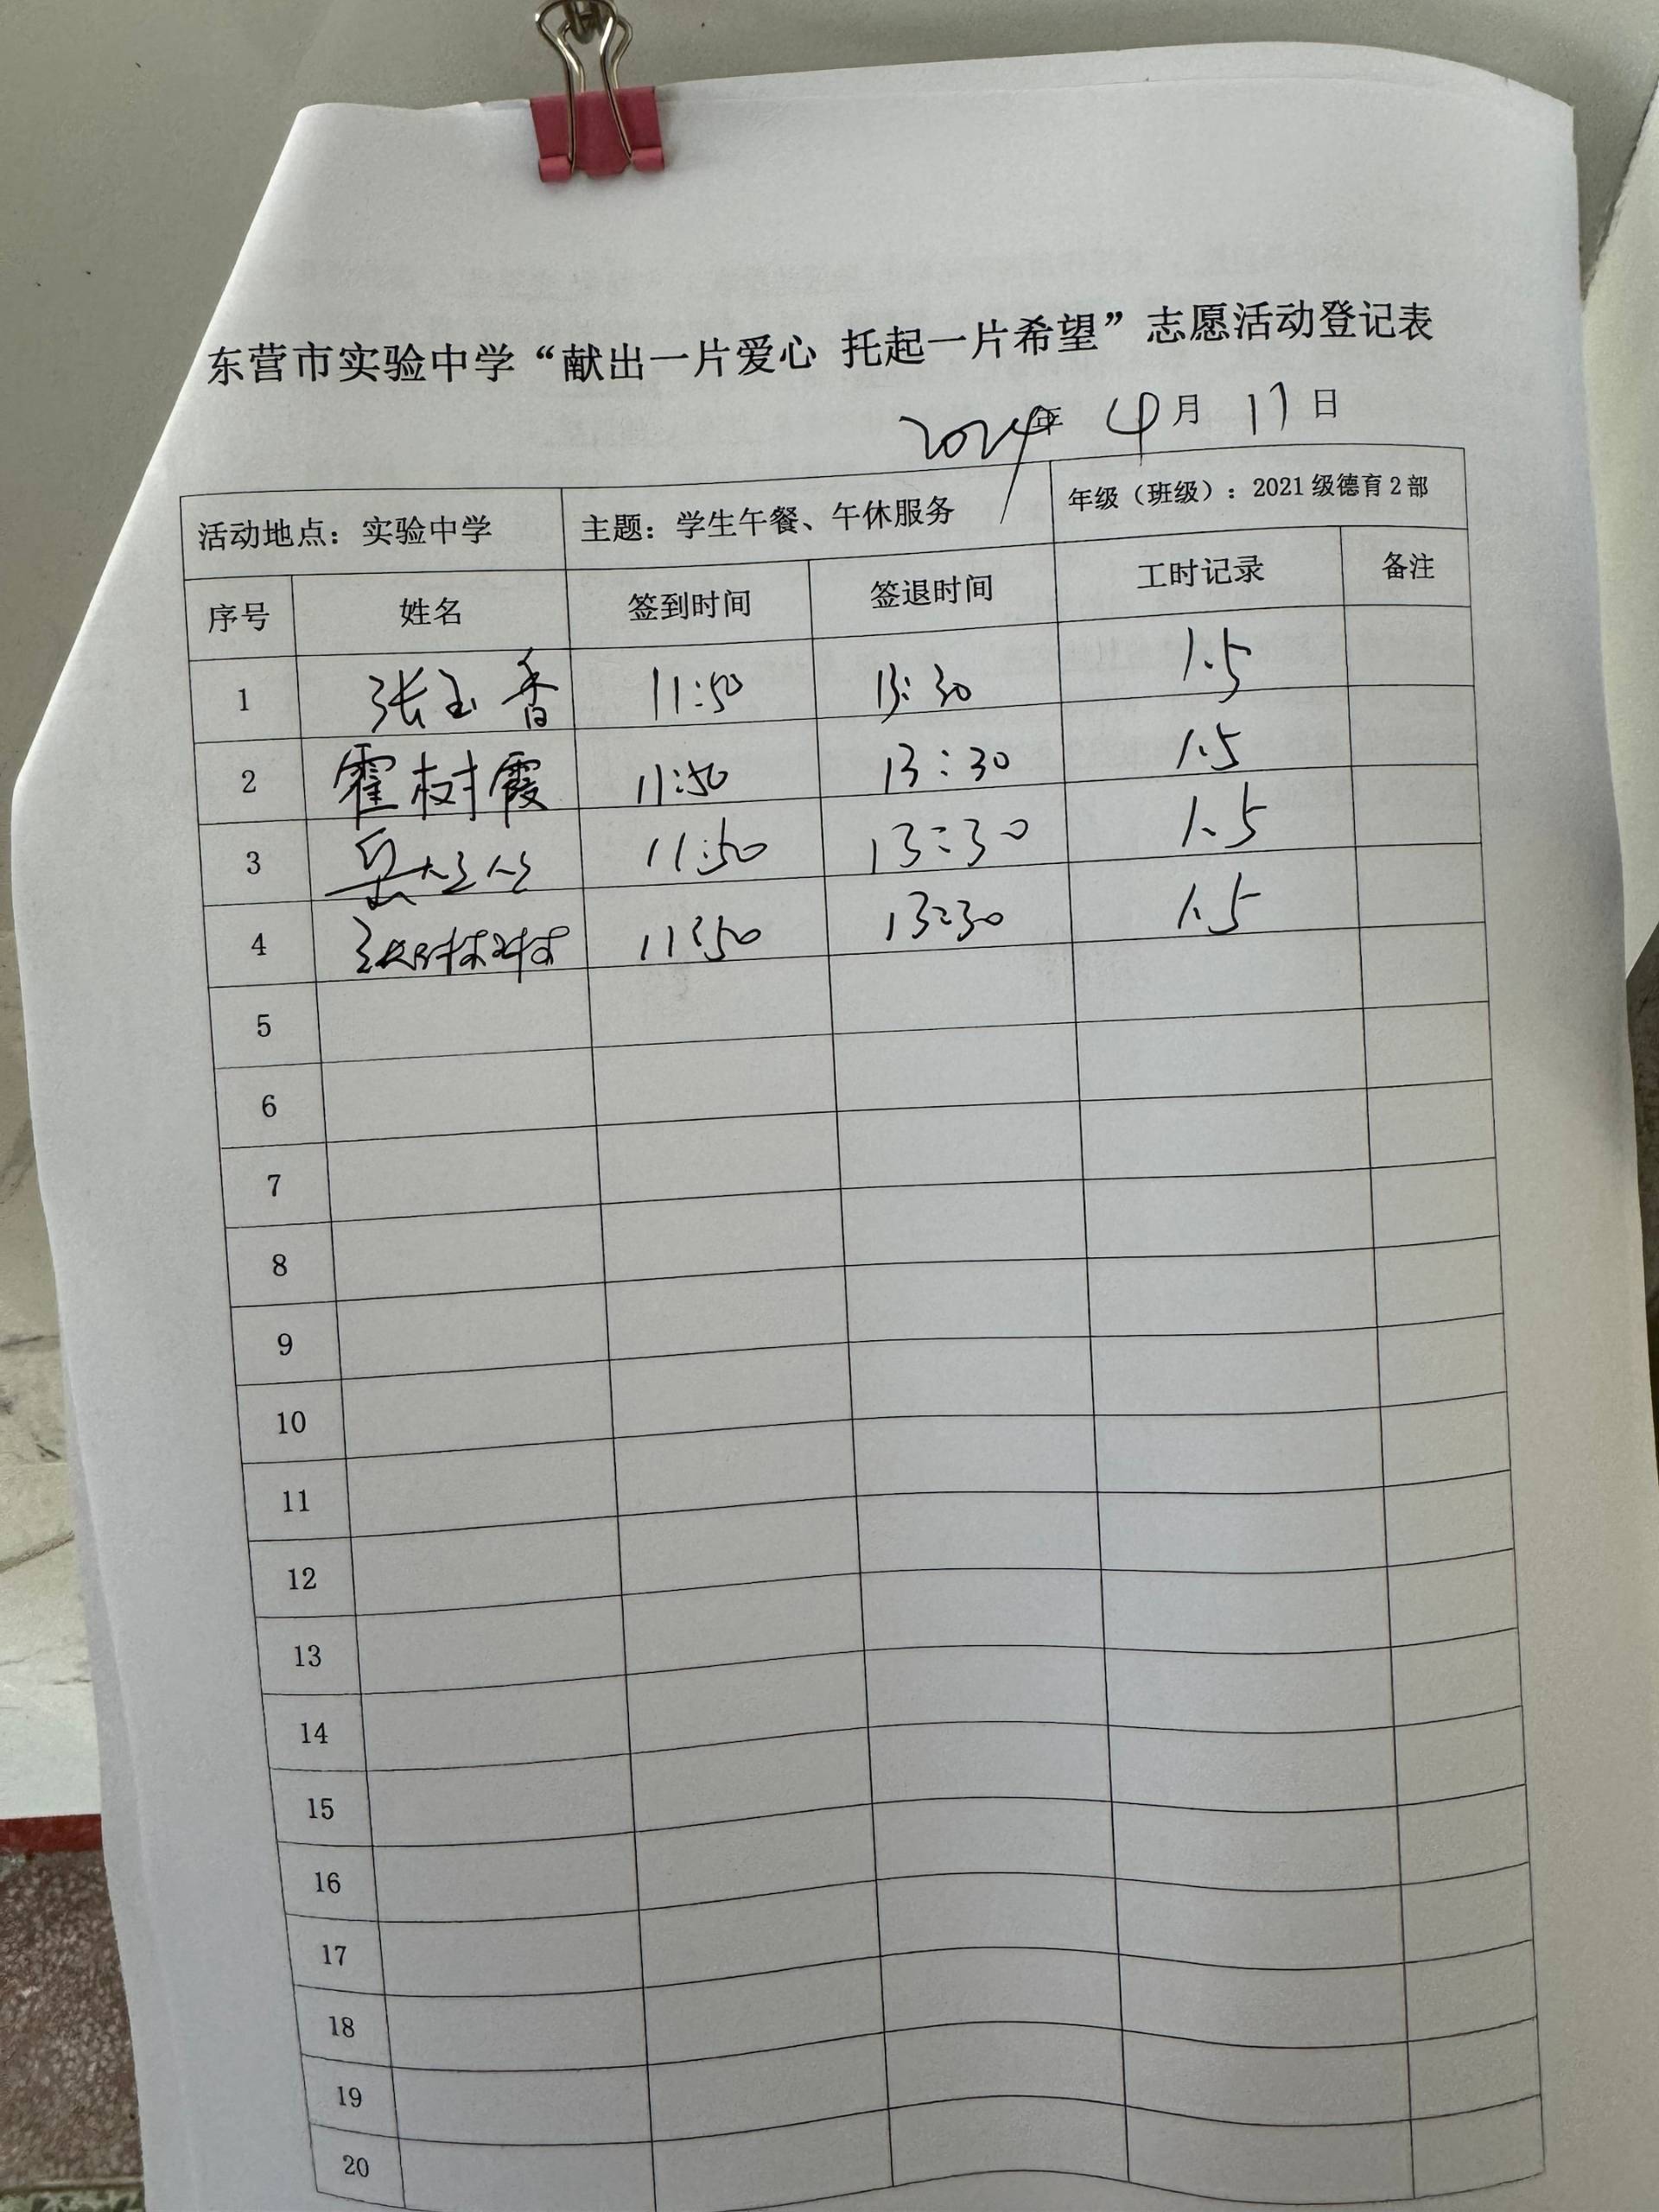 东营市实验中学“献出一片爱心 托起一片希望”志愿活动登记表
2024年 4月 17日
活动地点：实验中学 主题：学生午餐、午休服务 年级（班级）：2021级德育2部
序号 姓名 签到时间 签退时间 工时记录 备注
1 张玉香 11:50 13:30 1.5
2 霍树霞 11:50 13:30 1.5
3 11:50 13:30 1.5
4 11:50 13:30 1.5
5
6
7
8
9
10
11
12
13
14
15
16
17
18
19
20